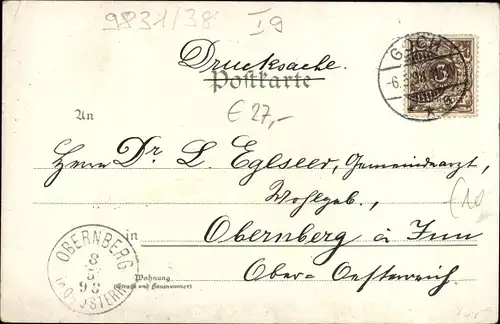 9831/38
I9
Drucksache.
Postkarte
GOCH
€ 27,-
An
Herrn Dr. L. Eglseer, Gemeindearzt,
Wohlgeb.,
€10
in Obernberg a Inn
Ober-Oesterreich.
Wohnung
(Straße und Hausnummer)
OBERNBERG
8
98